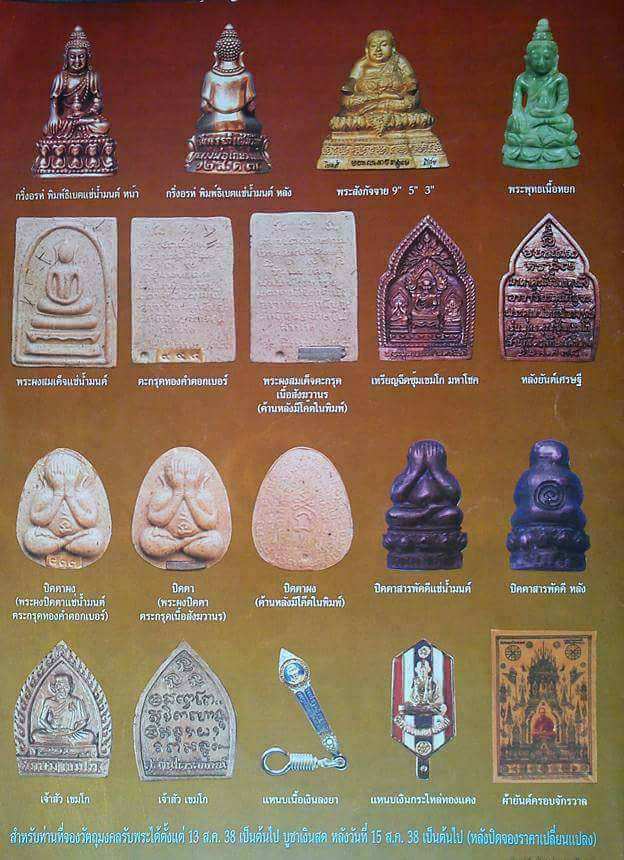 กริ่งอรห์ พิมพ์ธิเบตแช่น้ำมนต์ หน้า
กริ่งอรห์ พิมพ์ธิเบตแช่น้ำมนต์ หลัง
พระสังกัจจาย 9" 5" 3"
พระพุทธเนื้อหยก
พระผงสมเด็จแช่น้ำมนต์
ตะกรุดทองคำตอกเบอร์
พระผงสมเด็จตะกรุด
เนื้อสังฆวานร
(ด้านหลังมีโค๊ตในพิมพ์)
เหรียญฉีดซุ้มเขมโก มหาโชค
หลังยันต์เศรษฐี
ปิดตาผง
(พระผงปิดตาแช่น้ำมนต์
ตระกรุดทองคำตอกเบอร์)
ปิดตา
(พระผงปิดตา
ตระกรุดเนื้อสังฆวานร)
ปิดตาผง
(ด้านหลังมีโค๊ตในพิมพ์)
ปิดตาสารพัดดีแช่น้ำมนต์
ปิดตาสารพัดดี หลัง
เจ้าสัว เขมโก
เจ้าสัว เขมโก
แหนบเนื้อเงินลงยา
แหนบเงินกระไหล่ทองแดง
ผ้ายันต์ครอบจักรวาล
สำหรับท่านที่จองวัตถุมงคลรับพระได้ตั้งแต่ 13 ส.ค. 38 เป็นต้นไป บูชาเงินสด หลังวันที่ 15 ส.ค. 38 เป็นต้นไป (หลังปิดจองราคาเปลี่ยนแปลง)